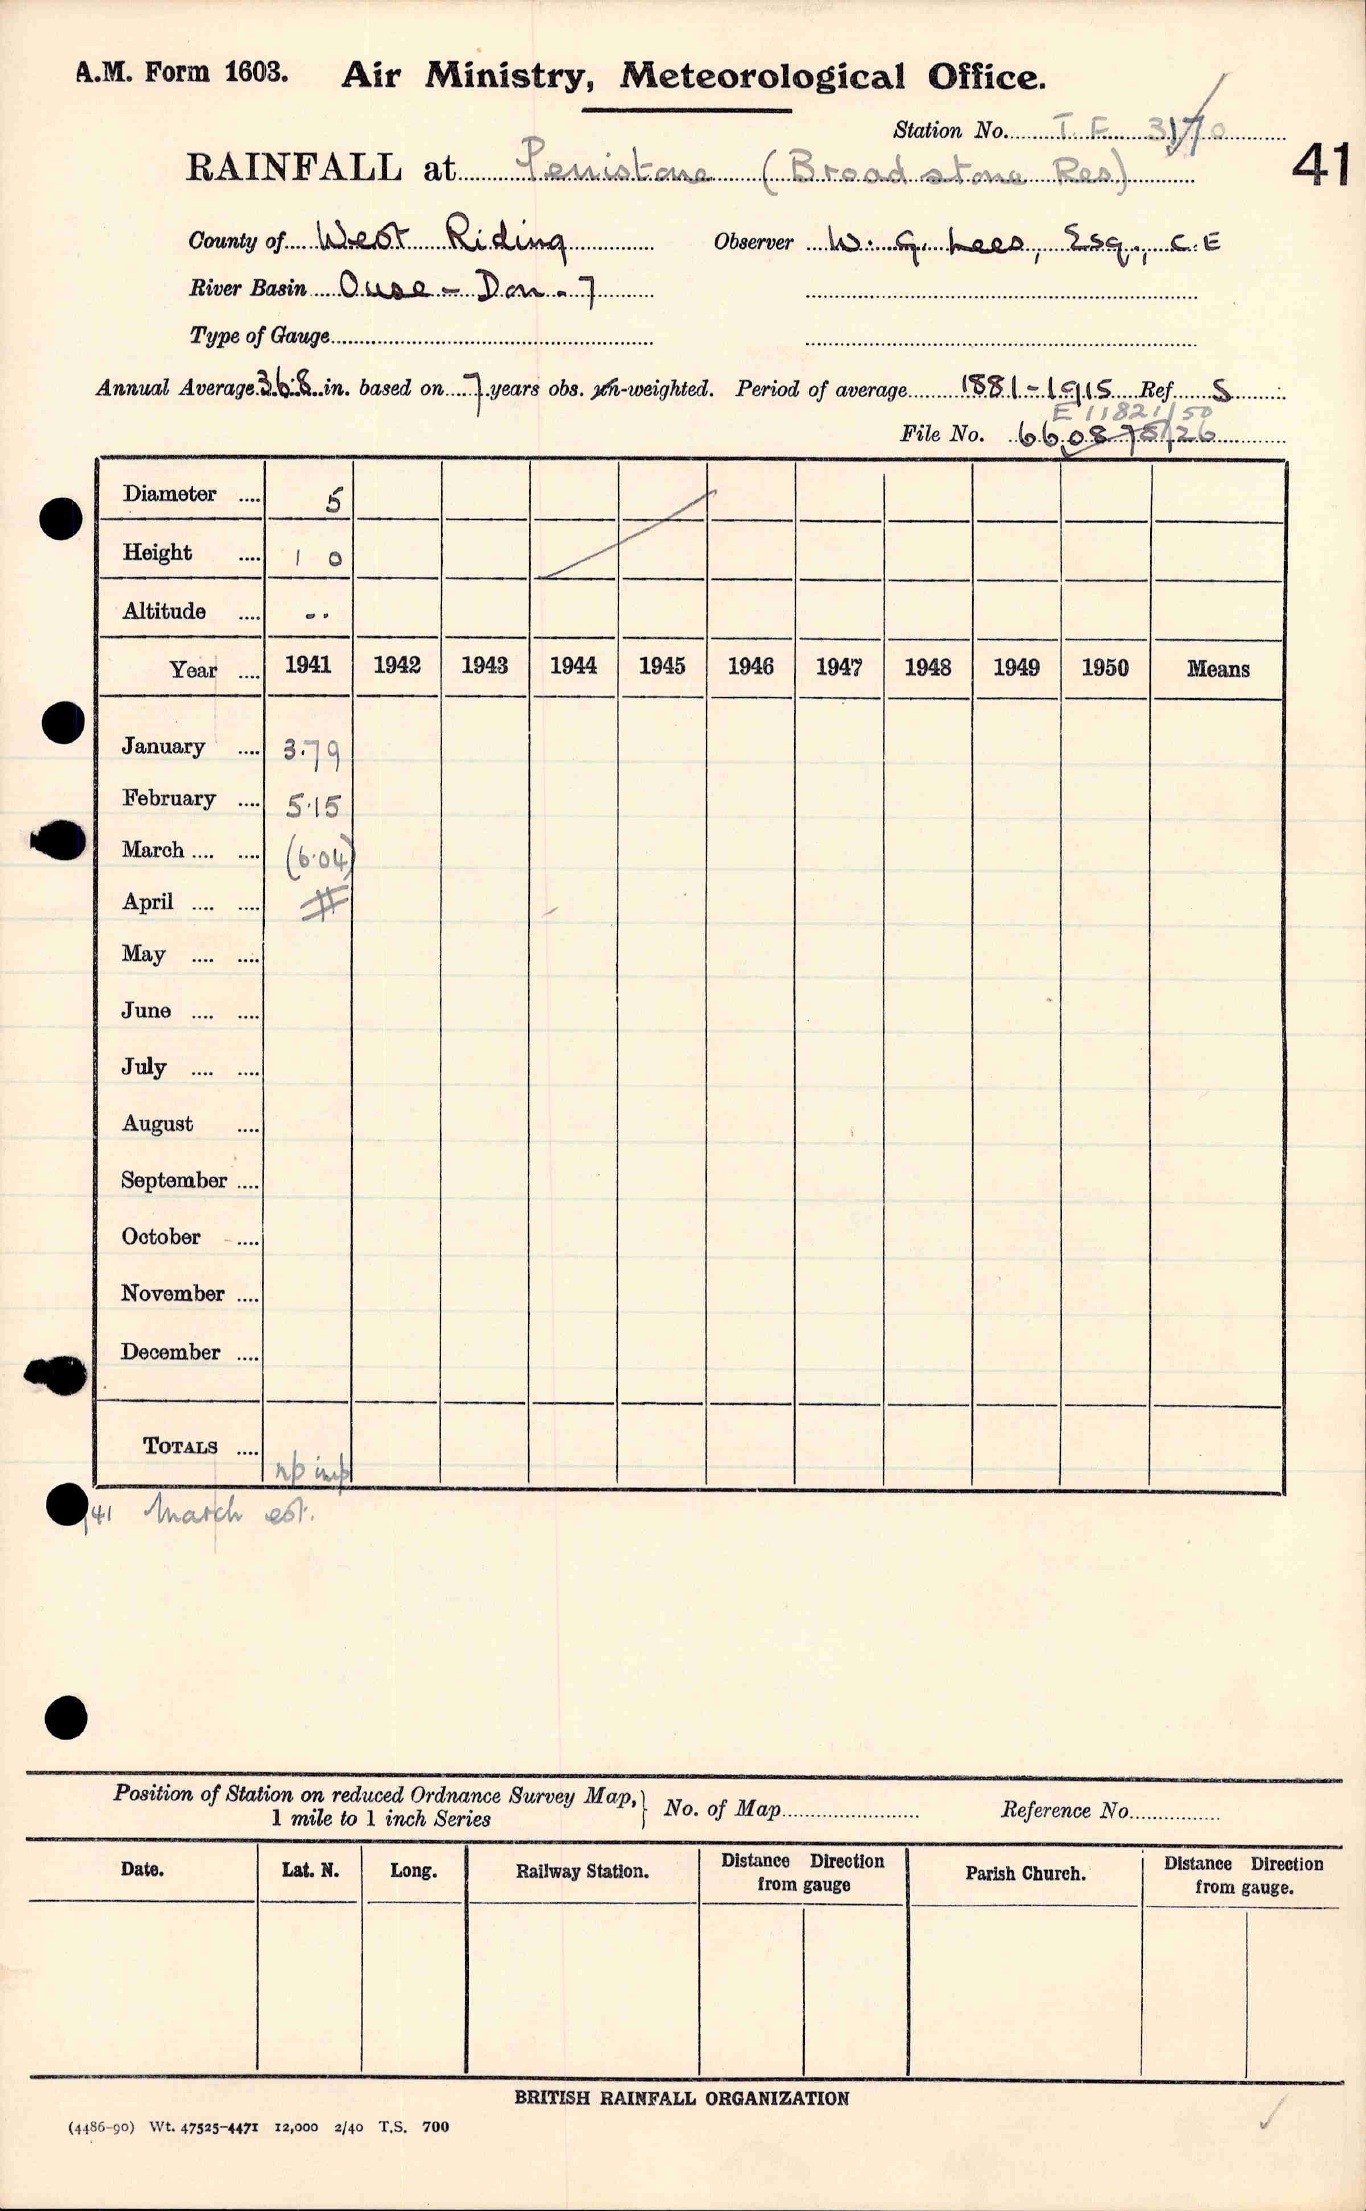 A.M. Form 1603. Air Ministry, Meteorological Office.
Station No. T.F. 3170
41
RAINFALL at Penistone (Broadstone Res)
County of West Riding Observer W. G. Lees, Esq., C.E
River Basin Ouse - Don - 7
Type of Gauge
Annual Average 36.8 in. based on 7 years obs. un-weighted. Period of average 1881-1915 Ref. S
E 11821/50
File No. 660875/26
Diameter .... 5
Height .... 1 0
Altitude .... --
Year .... 1941 1942 1943 1944 1945 1946 1947 1948 1949 1950 Means
January .... 3.79
February .... 5.15
March .... .... (6.04)
April .... ....
May .... ....
June .... ....
July .... ....
August ....
September ....
October ....
November ....
December ....
TOTALS .... np imp
41 March est.
Position of Station on reduced Ordnance Survey Map, 1 mile to 1 inch Series } No. of Map Reference No.
Date. Lat. N. Long. Railway Station. Distance Direction from gauge Parish Church. Distance Direction from gauge.
BRITISH RAINFALL ORGANIZATION
(4486-90) Wt. 47525-4471 12,000 2/40 T.S. 700